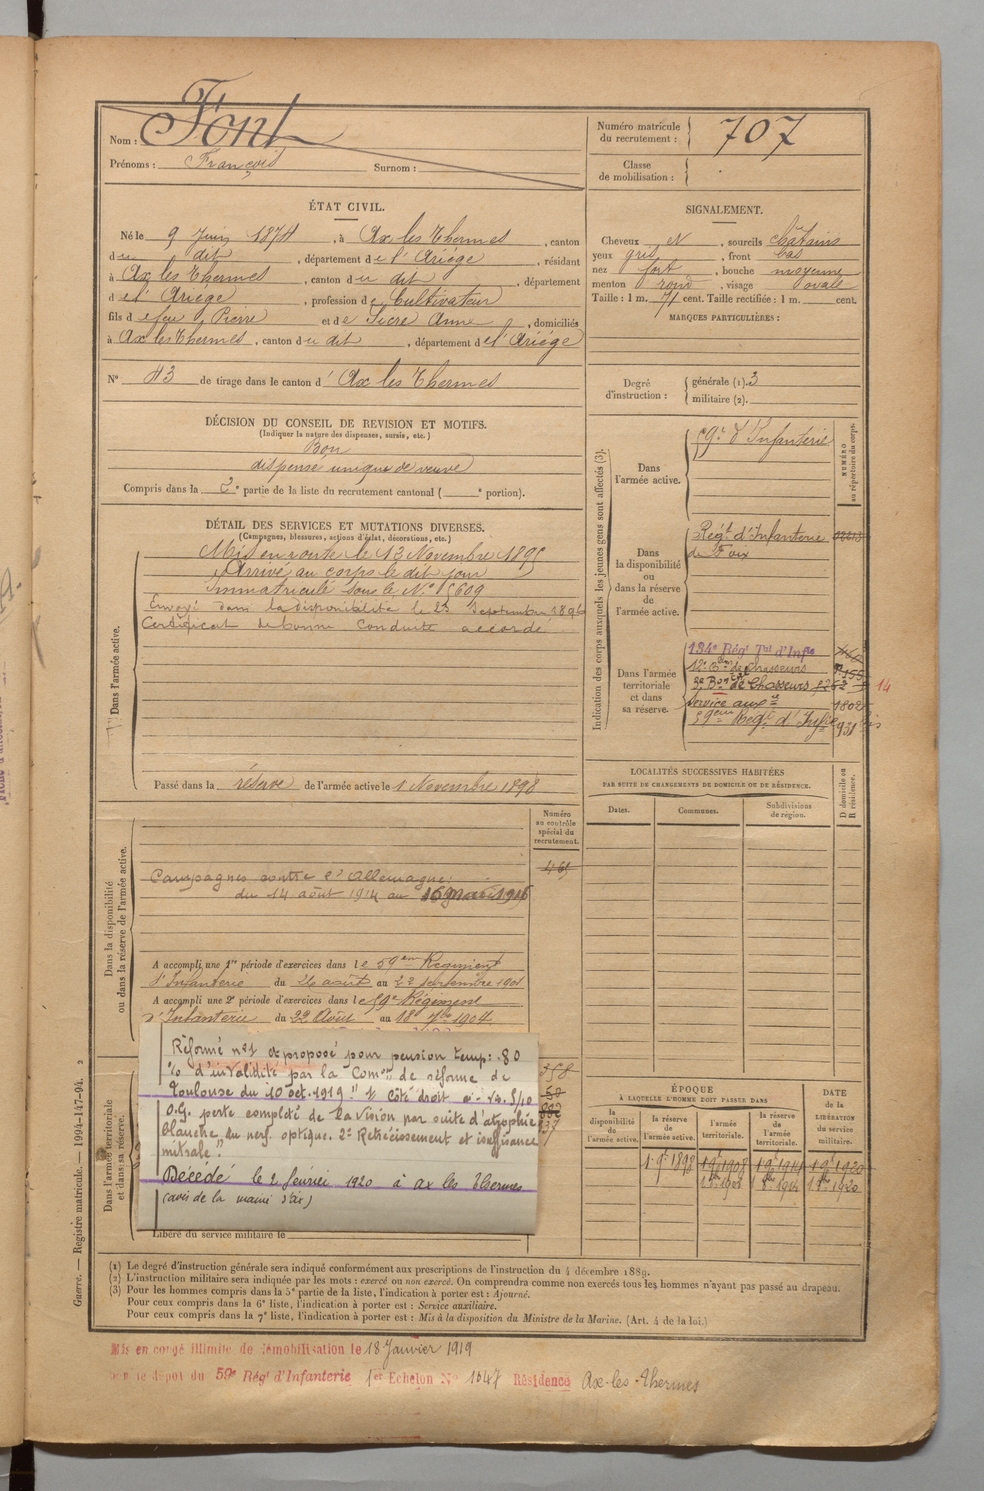 Nom : Font
Prénoms : François Surnom :
Numéro matricule du recrutement : 707
Classe de mobilisation :
ÉTAT CIVIL.
Né le 9 Juin 1874, à Ax les Thermes, canton
du dit, département de l'Ariège, résidant
à Ax les Thermes, canton du dit, département
de l'Ariège, profession de Cultivateur
fils de feu Pierre et de Sicre Anne, domiciliés
à Ax les Thermes, canton du dit, département de l'Ariège
N° 43 de tirage dans le canton d' Ax les Thermes
SIGNALEMENT.
Cheveux et, sourcils châtains
yeux gris, front bas
nez fort, bouche moyenne
menton rond, visage ovale
Taille : 1 m. 71 cent. Taille rectifiée : 1 m. cent.
MARQUES PARTICULIÈRES :
Degré d'instruction : générale (1). 3
militaire (2).
DÉCISION DU CONSEIL DE REVISION ET MOTIFS.
(Indiquer la nature des dispenses, sursis, etc.)
Bon
dispensé unique de veuve
Compris dans la 2e partie de la liste du recrutement cantonal ( e portion).
DÉTAIL DES SERVICES ET MUTATIONS DIVERSES.
(Campagnes, blessures, actions d'éclat, décorations, etc.)
Dans l'armée active.
Mis en route le 13 Novembre 1895
Arrivé au corps le dit jour
Immatriculé sous le N° 5609
Envoyé dans la disponibilité le 25 Septembre 1896
Certificat de bonne conduite accordé
Passé dans la réserve de l'armée active le 1 Novembre 1898
Indication des corps auxquels les jeunes gens sont affectés (3).
NUMÉRO au répertoire du corps.
Dans l'armée active.
59e d'Infanterie
Dans la disponibilité ou dans la réserve de l'armée active.
Régt d'Infanterie
de Foix
Dans l'armée territoriale et dans sa réserve.
134e Régt Tal d'Infie
12e Eon de Chasseurs
3e Bon de Chasseurs
14
Service auxre
1802
59ème Régt d'Infie 931 bis
LOCALITÉS SUCCESSIVES HABITÉES
PAR SUITE DE CHANGEMENTS DE DOMICILE OU DE RÉSIDENCE.
Dates. Communes. Subdivisions de région. D domicile ou R résidence.
Numéro au contrôle spécial du recrutement.
Dans la disponibilité ou dans la réserve de l'armée active.
Campagnes contre l'Allemagne:
du 14 août 1914 au 16 Mai 1916
A accompli une 1re période d'exercices dans le 59ème Régiment
d'Infanterie du 26 août au 22 septembre 1901
A accompli une 2e période d'exercices dans le 59e Régiment
d'Infanterie du 22 Août au 18 7bre 1904
Dans l'armée territoriale et dans sa réserve.
Réformé n°1 et proposé pour pension temp: 80
% d'invalidité par la Comon de réforme de
Toulouse du 10 oct. 1919 "1° Côté droit
O.G. perte complète de la vision par suite d'atrophie
blanche du nerf optique. 2° Retrécissement et insuffisance
mitrale".
Décédé le 2 février 1920 à Ax les Thermes
(avis de la mairie d'Ax)
Libéré du service militaire le
ÉPOQUE
À LAQUELLE L'HOMME DOIT PASSER DANS
la disponibilité de l'armée active. la réserve de l'armée active. l'armée territoriale. la réserve de l'armée territoriale. DATE de la LIBÉRATION du service militaire.
Guerre. — Registre matricule. — 1994-147-94. 2
(1) Le degré d'instruction générale sera indiqué conformément aux prescriptions de l'instruction du 4 décembre 1889.
(2) L'instruction militaire sera indiquée par les mots : exercé ou non exercé. On comprendra comme non exercés tous les hommes n'ayant pas passé au drapeau.
(3) Pour les hommes compris dans la 5e partie de la liste, l'indication à porter est : Ajourné.
Pour ceux compris dans la 6e liste, l'indication à porter est : Service auxiliaire.
Pour ceux compris dans la 7e liste, l'indication à porter est : Mis à la disposition du Ministre de la Marine. (Art. 4 de la loi.)
Mis en congé illimité de démobilisation le 18 Janvier 1919
par le dépôt du 59e Régt d'Infanterie 1er Echelon N° 1047 Résidence Ax-les-Thermes